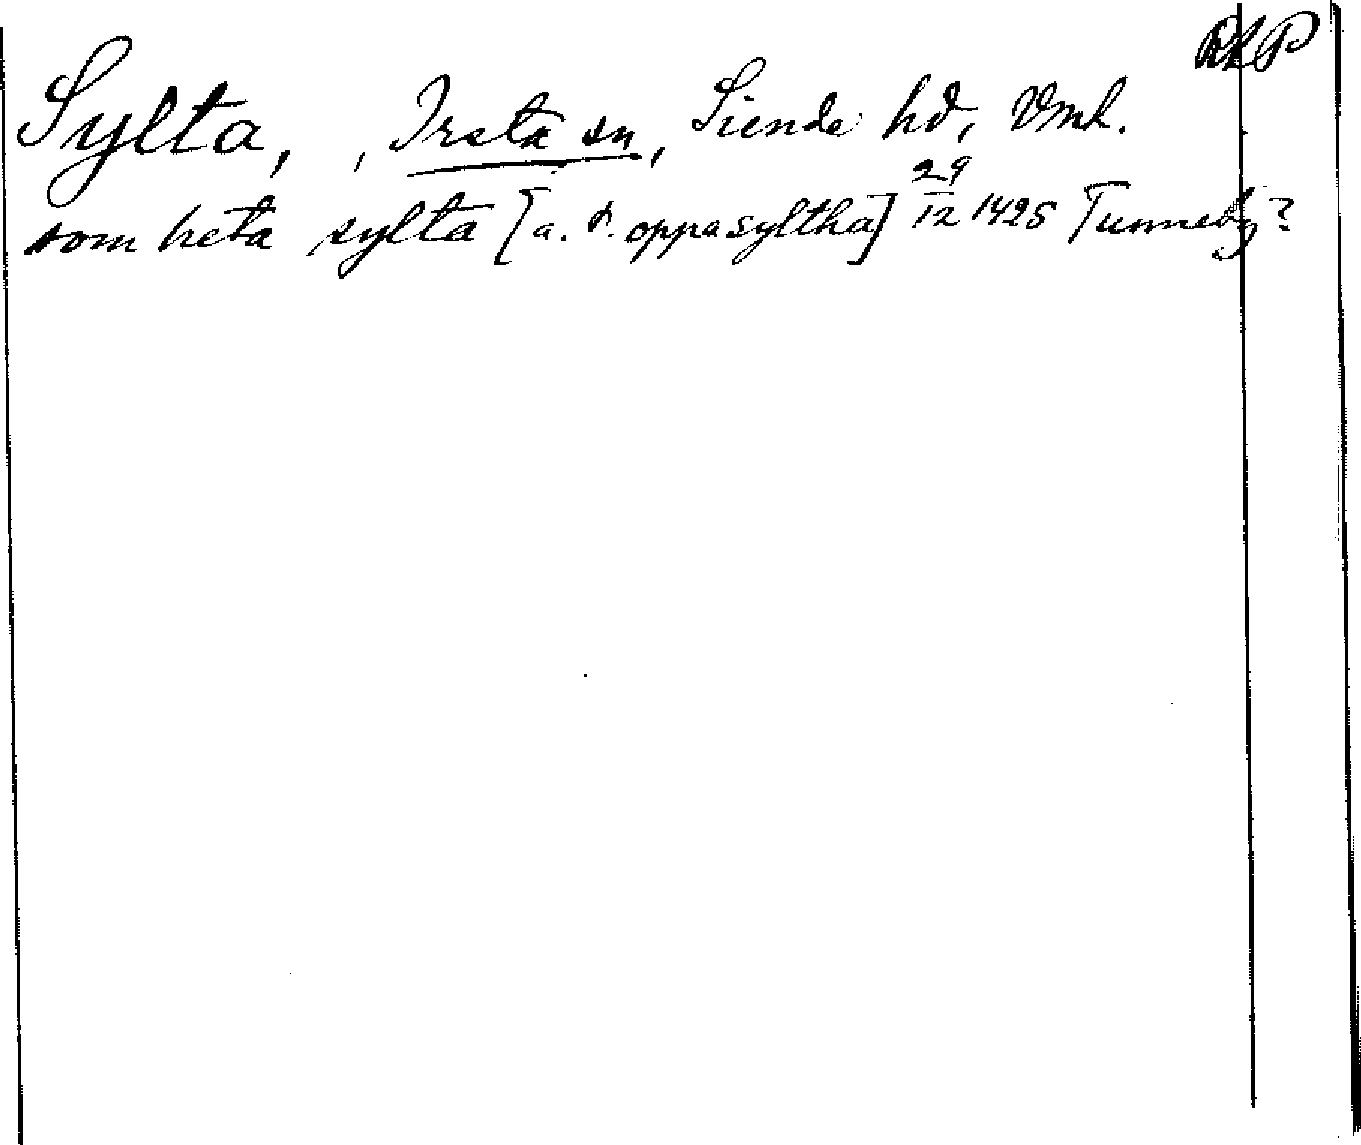 RAP
Sylta, , Irsta sn, Siende hd, Vml.
som heta sylta [a. t. oppa syltha] 29/12 1425 Tunneby?